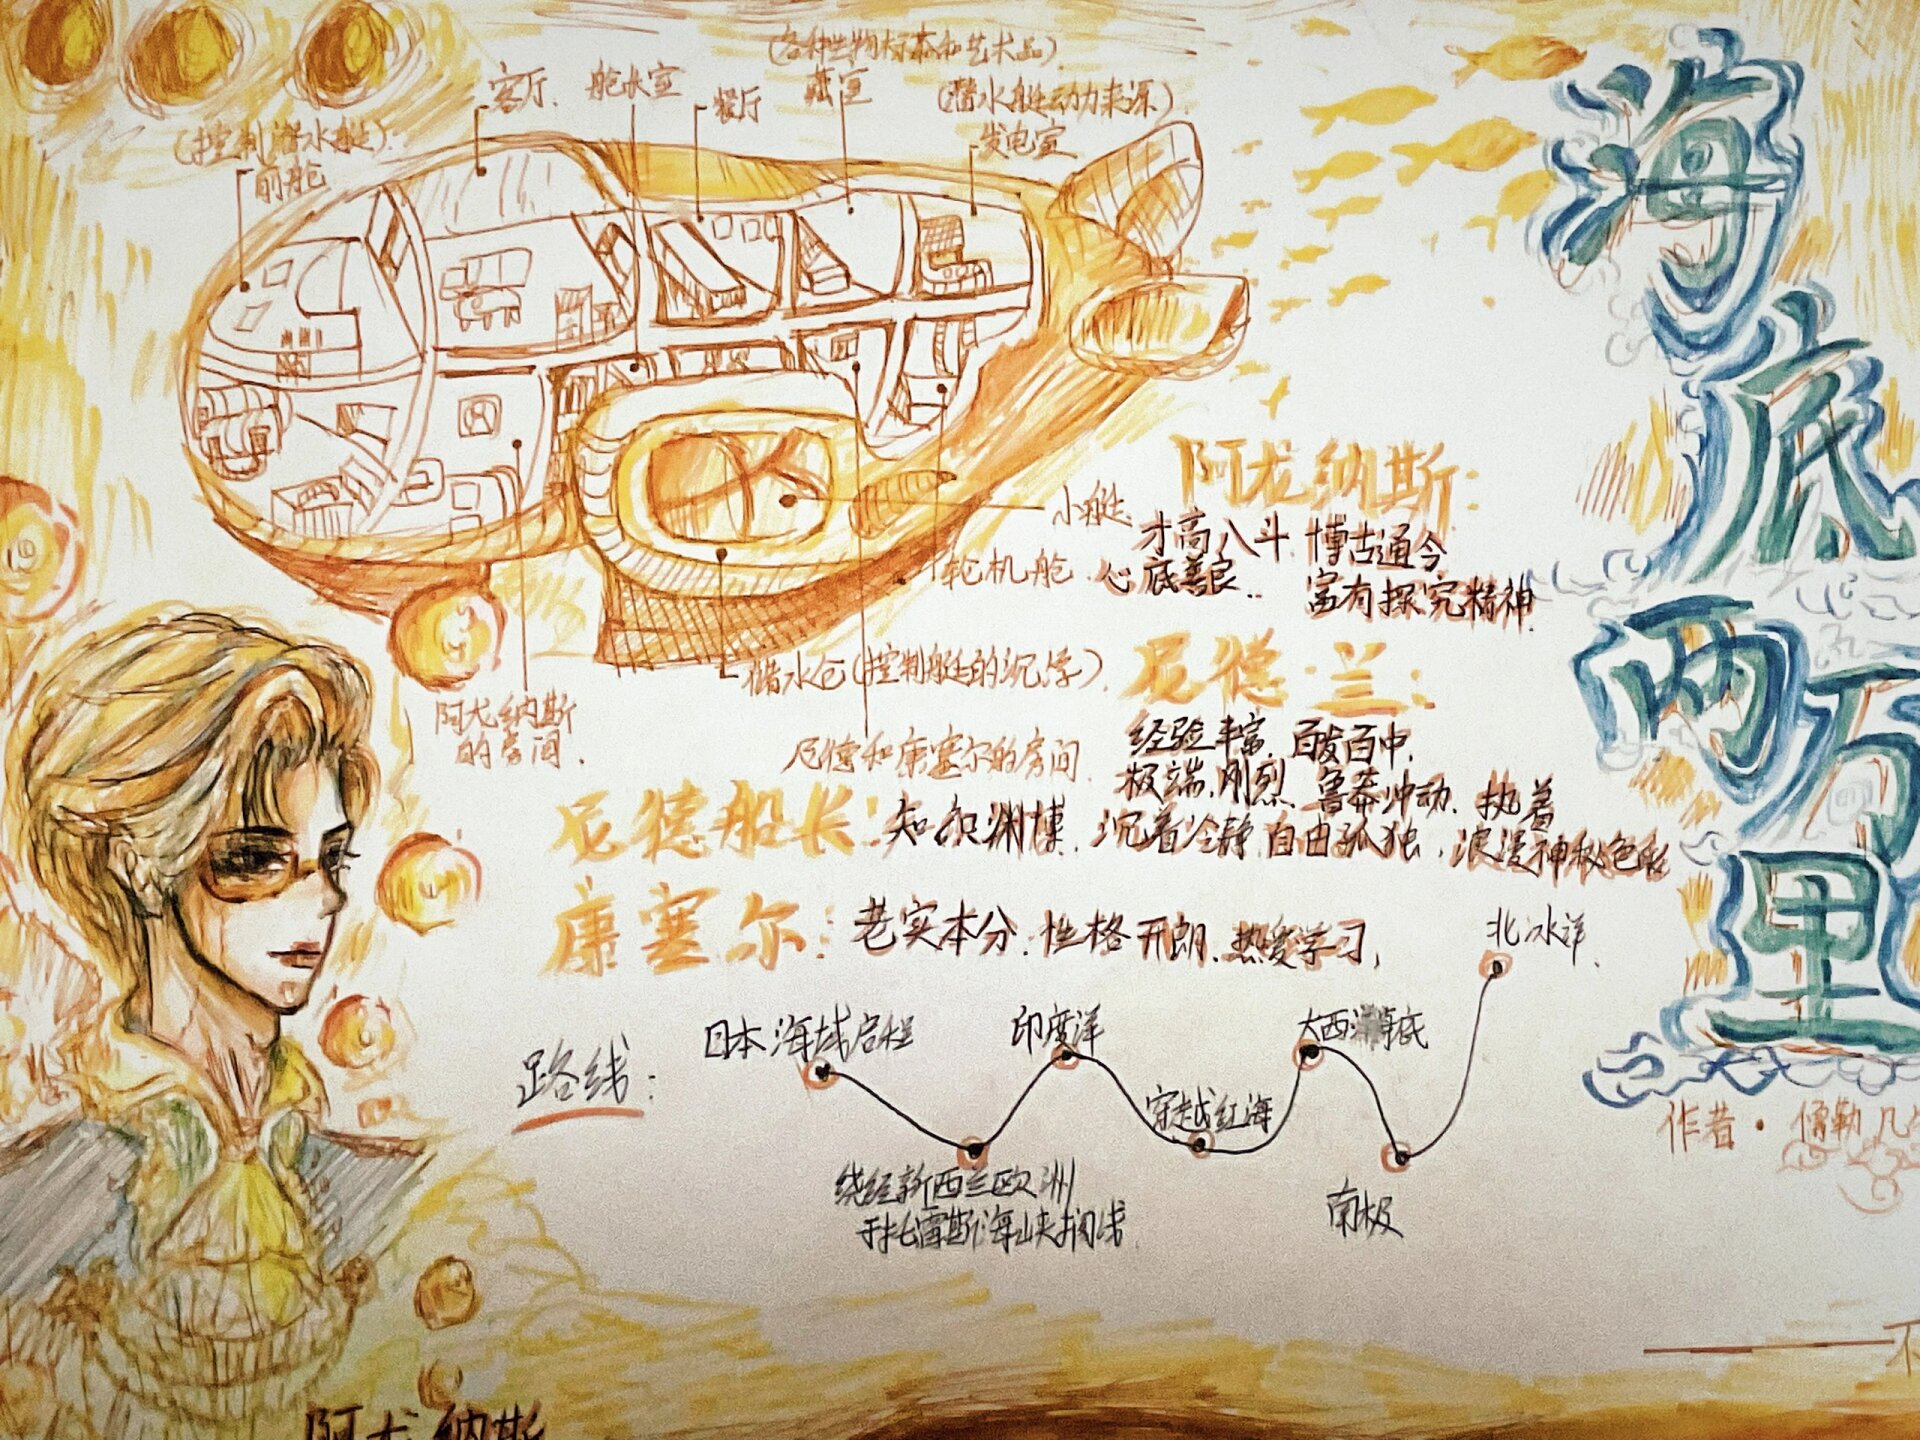 海底两万里
(各种生物标本和艺术品)
藏室
客厅.
舱长室
餐厅
(潜水艇动力来源)
发电室
(控制潜水艇)
前舱
小艇.
轮机舱
储水仓(控制艇的沉浮).
阿龙纳斯
的房间.
尼德和康塞尔的房间.
阿龙纳斯:
才高八斗 博古通今
心底善良.. 富有探究精神
尼德·兰:
经验丰富、百发百中、
极端、刚烈、鲁莽冲动、执着
尼德船长: 知识渊博、沉着冷静、自由孤独,浪漫神秘色彩
康塞尔: 老实本分、性格开朗、热爱学习,
路线:
日本海域启程
绕经新西兰欧洲
于托雷斯海峡搁浅
印度洋
穿越红海
大西洋海底
南极
北冰洋.
作者·儒勒凡
阿龙纳斯